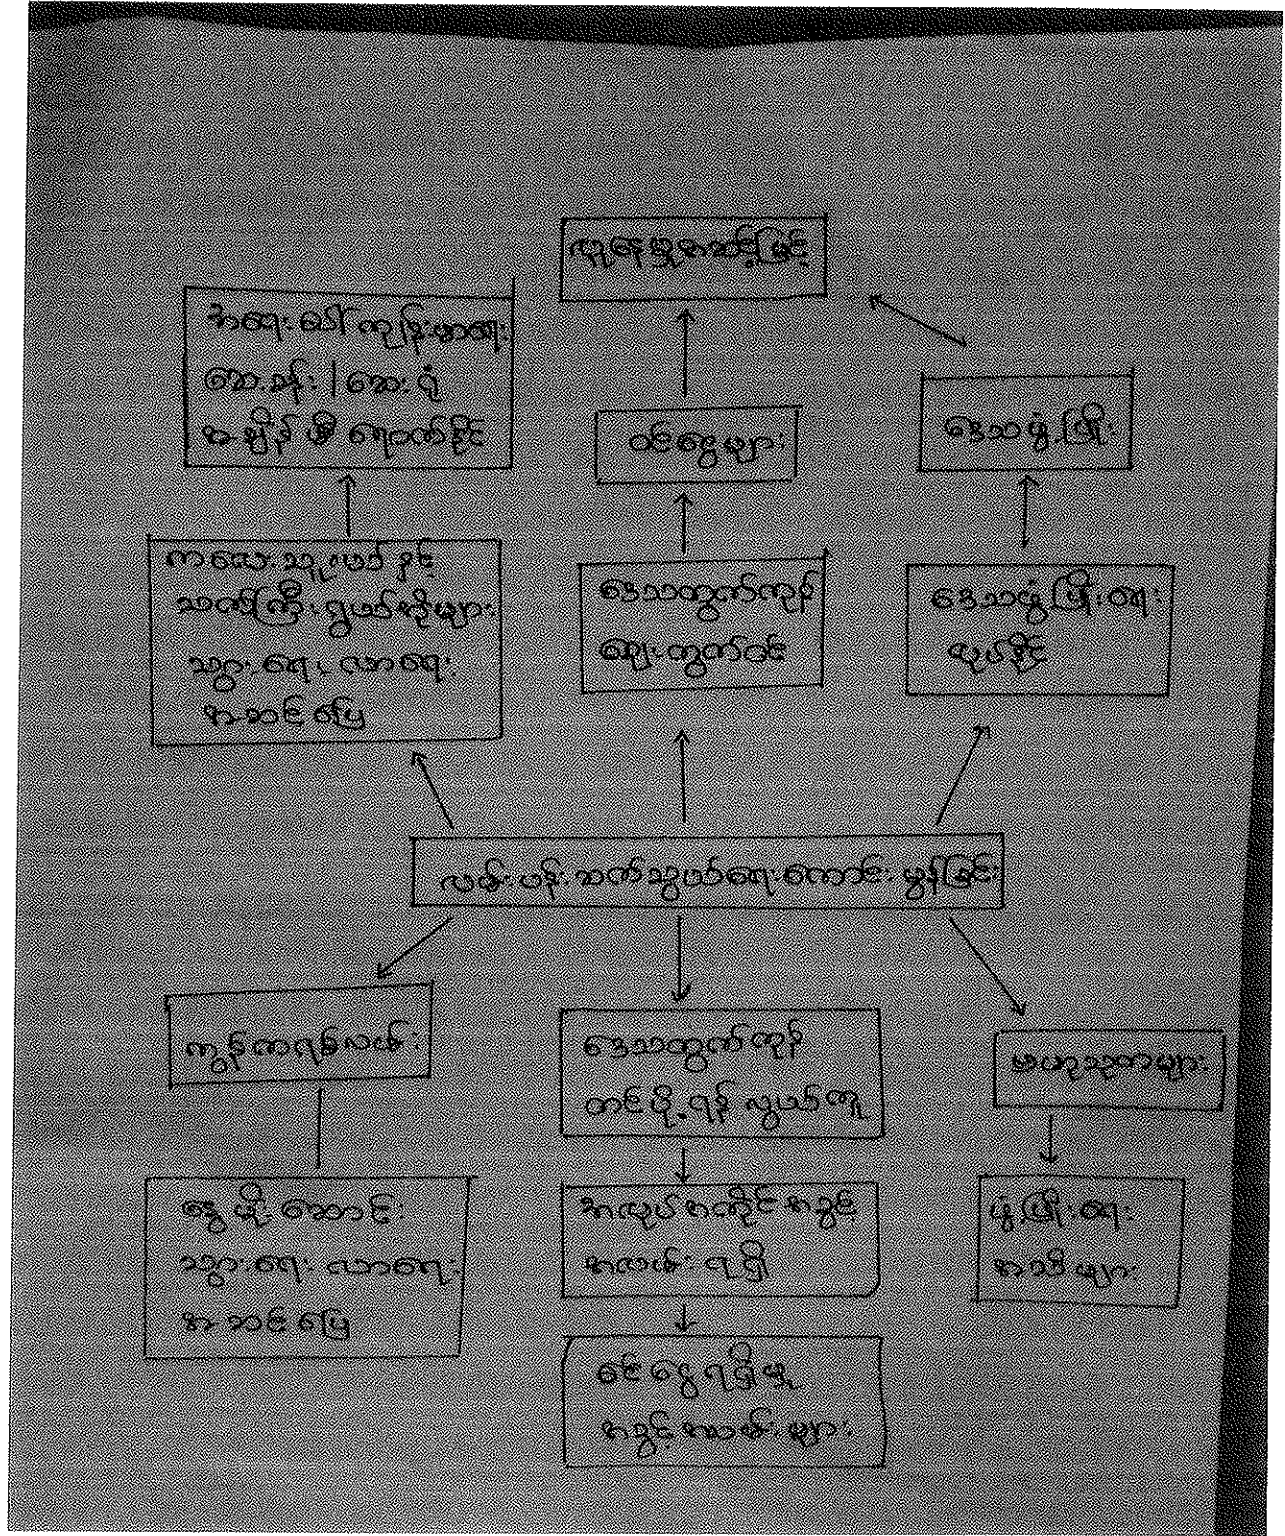 လူနေမှုအဆင့်မြင့်
အရေးပေါ်ကျန်းမာရေး
ဆေးခန်း / ဆေးရုံ
အချိန်မှီ ရောက်နိုင်
ဝင်ငွေများ
ဒေသဖွံ့ဖြိုး
ကလေးသူငယ်နှင့်
သက်ကြီးရွယ်အိုများ
သွားရေးလာရေး
အဆင်ပြေ
ဒေသထွက်ကုန်
ဈေးကွက်ဝင်
ဒေသဖွံ့ဖြိုးရေး
လုပ်နိုင်
လမ်းပန်းဆက်သွယ်ရေးကောင်းမွန်ခြင်း
ကွန်ကရစ်လမ်း
ဒေသထွက်ကုန်
တင်ပို့ရန် လွယ်ကူ
ဗဟုသုတများ
နွေ မိုး ဆောင်း
သွားရေး လာရေး
အဆင်ပြေ
အလုပ်အကိုင်အခွင့်
အလမ်းရရှိ
ဖွံ့ဖြိုးရေး
အသိများ
ဝင်ငွေရရှိမှု
အခွင့်အလမ်းများ